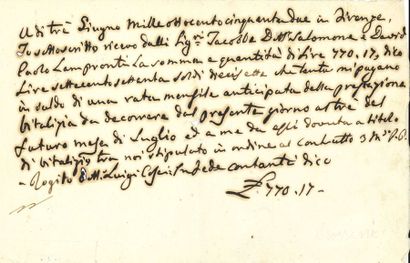 A dì trè Giugno Mille ottocento cinquanta due in Firenze,
Io sottoscritto ricevo dalli Sig.ri Jacob e D.re Salomone e David
Paolo Lampronti La somma e quantità di Lire 770. 17., dico
Lire settecento settanta soldi diciasette che tanti mi pagano
in saldo di una rata mensile anticipata della prestazione
Vitalizia da decorrere dal presente giorno a tre del
futuro mese di Luglio ed a me da essi dovuta a titolo
di Vitalizio tra noi stipulato in ordine al contratto 3
Rogito Luigi In fede contanti dico
£. 770. 17 -